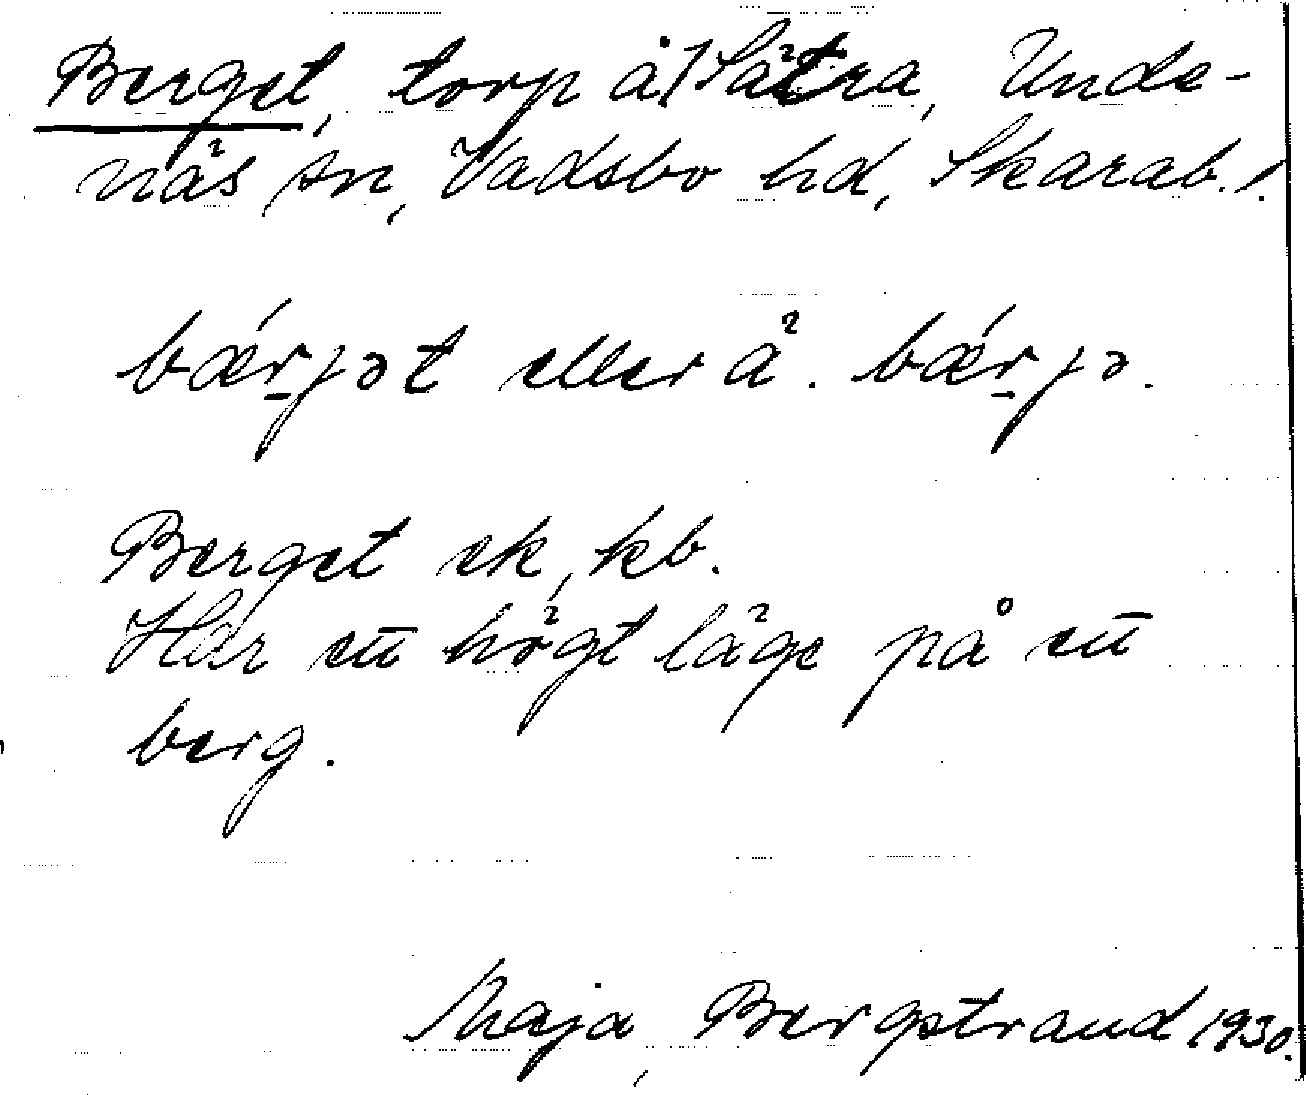 Berget, torp å Sätra, Unde-
näs sn, Vadsbo hd, Skarab. l.
bǽr̠jət eller ä. bǽr̠jə.
Berget ek, kb.
Har ett högt läge på ett
berg.
Maja Bergstrand 1930.